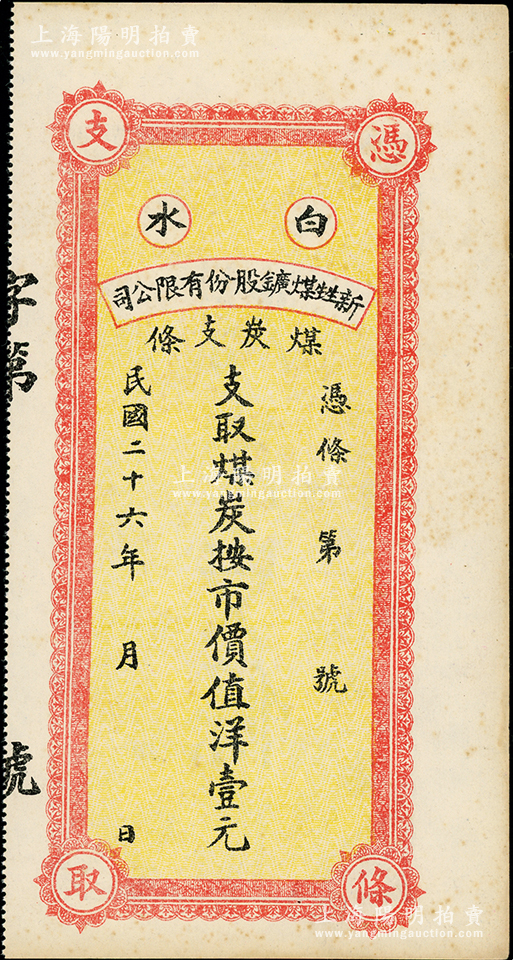 上海陽明拍賣
www.yangmingauction.com
憑條
支取
白水
新甡煤鑛股份有限公司
煤炭支條
憑條第 號
支取煤炭按市價值洋壹元
民國二十六年 月 日
字第 號
上海陽明拍賣
www.yangmingauction.com
上海陽明拍賣
www.yangmingauction.com